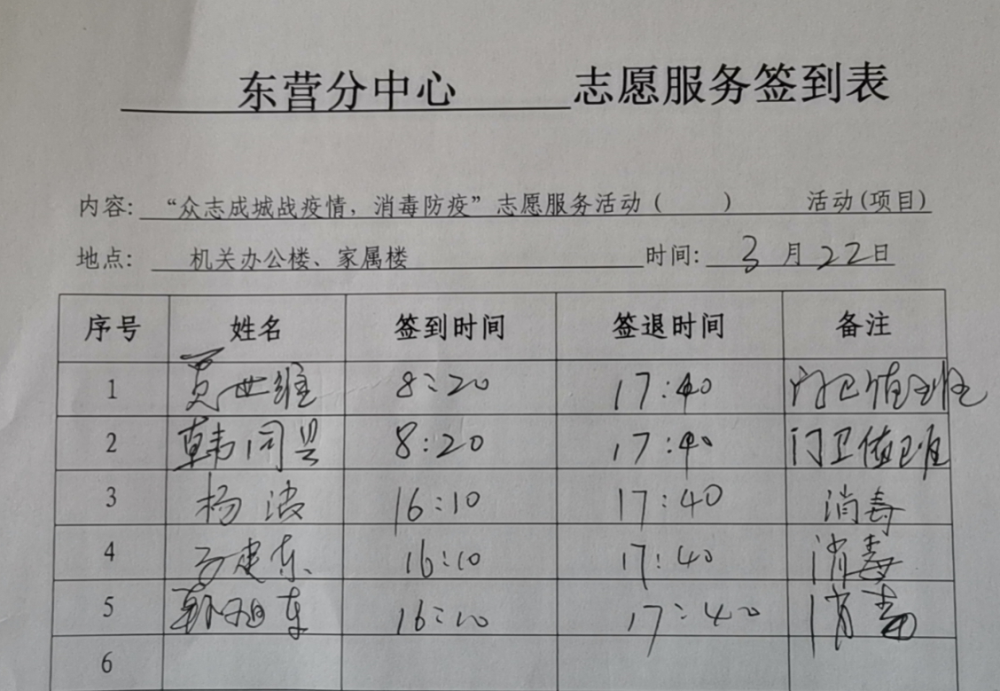 东营分中心 志愿服务签到表
内容: “众志成城战疫情，消毒防疫”志愿服务活动（ ） 活动(项目)
地点: 机关办公楼、家属楼 时间: 3月22日
序号 姓名 签到时间 签退时间 备注
1 贾世维 8:20 17:40 门卫值班
2 韩同兴 8:20 17:40 门卫值班
3 杨波 16:10 17:40 消毒
4 建东 16:10 17:40 消毒
5 东 16:10 17:40 消毒
6